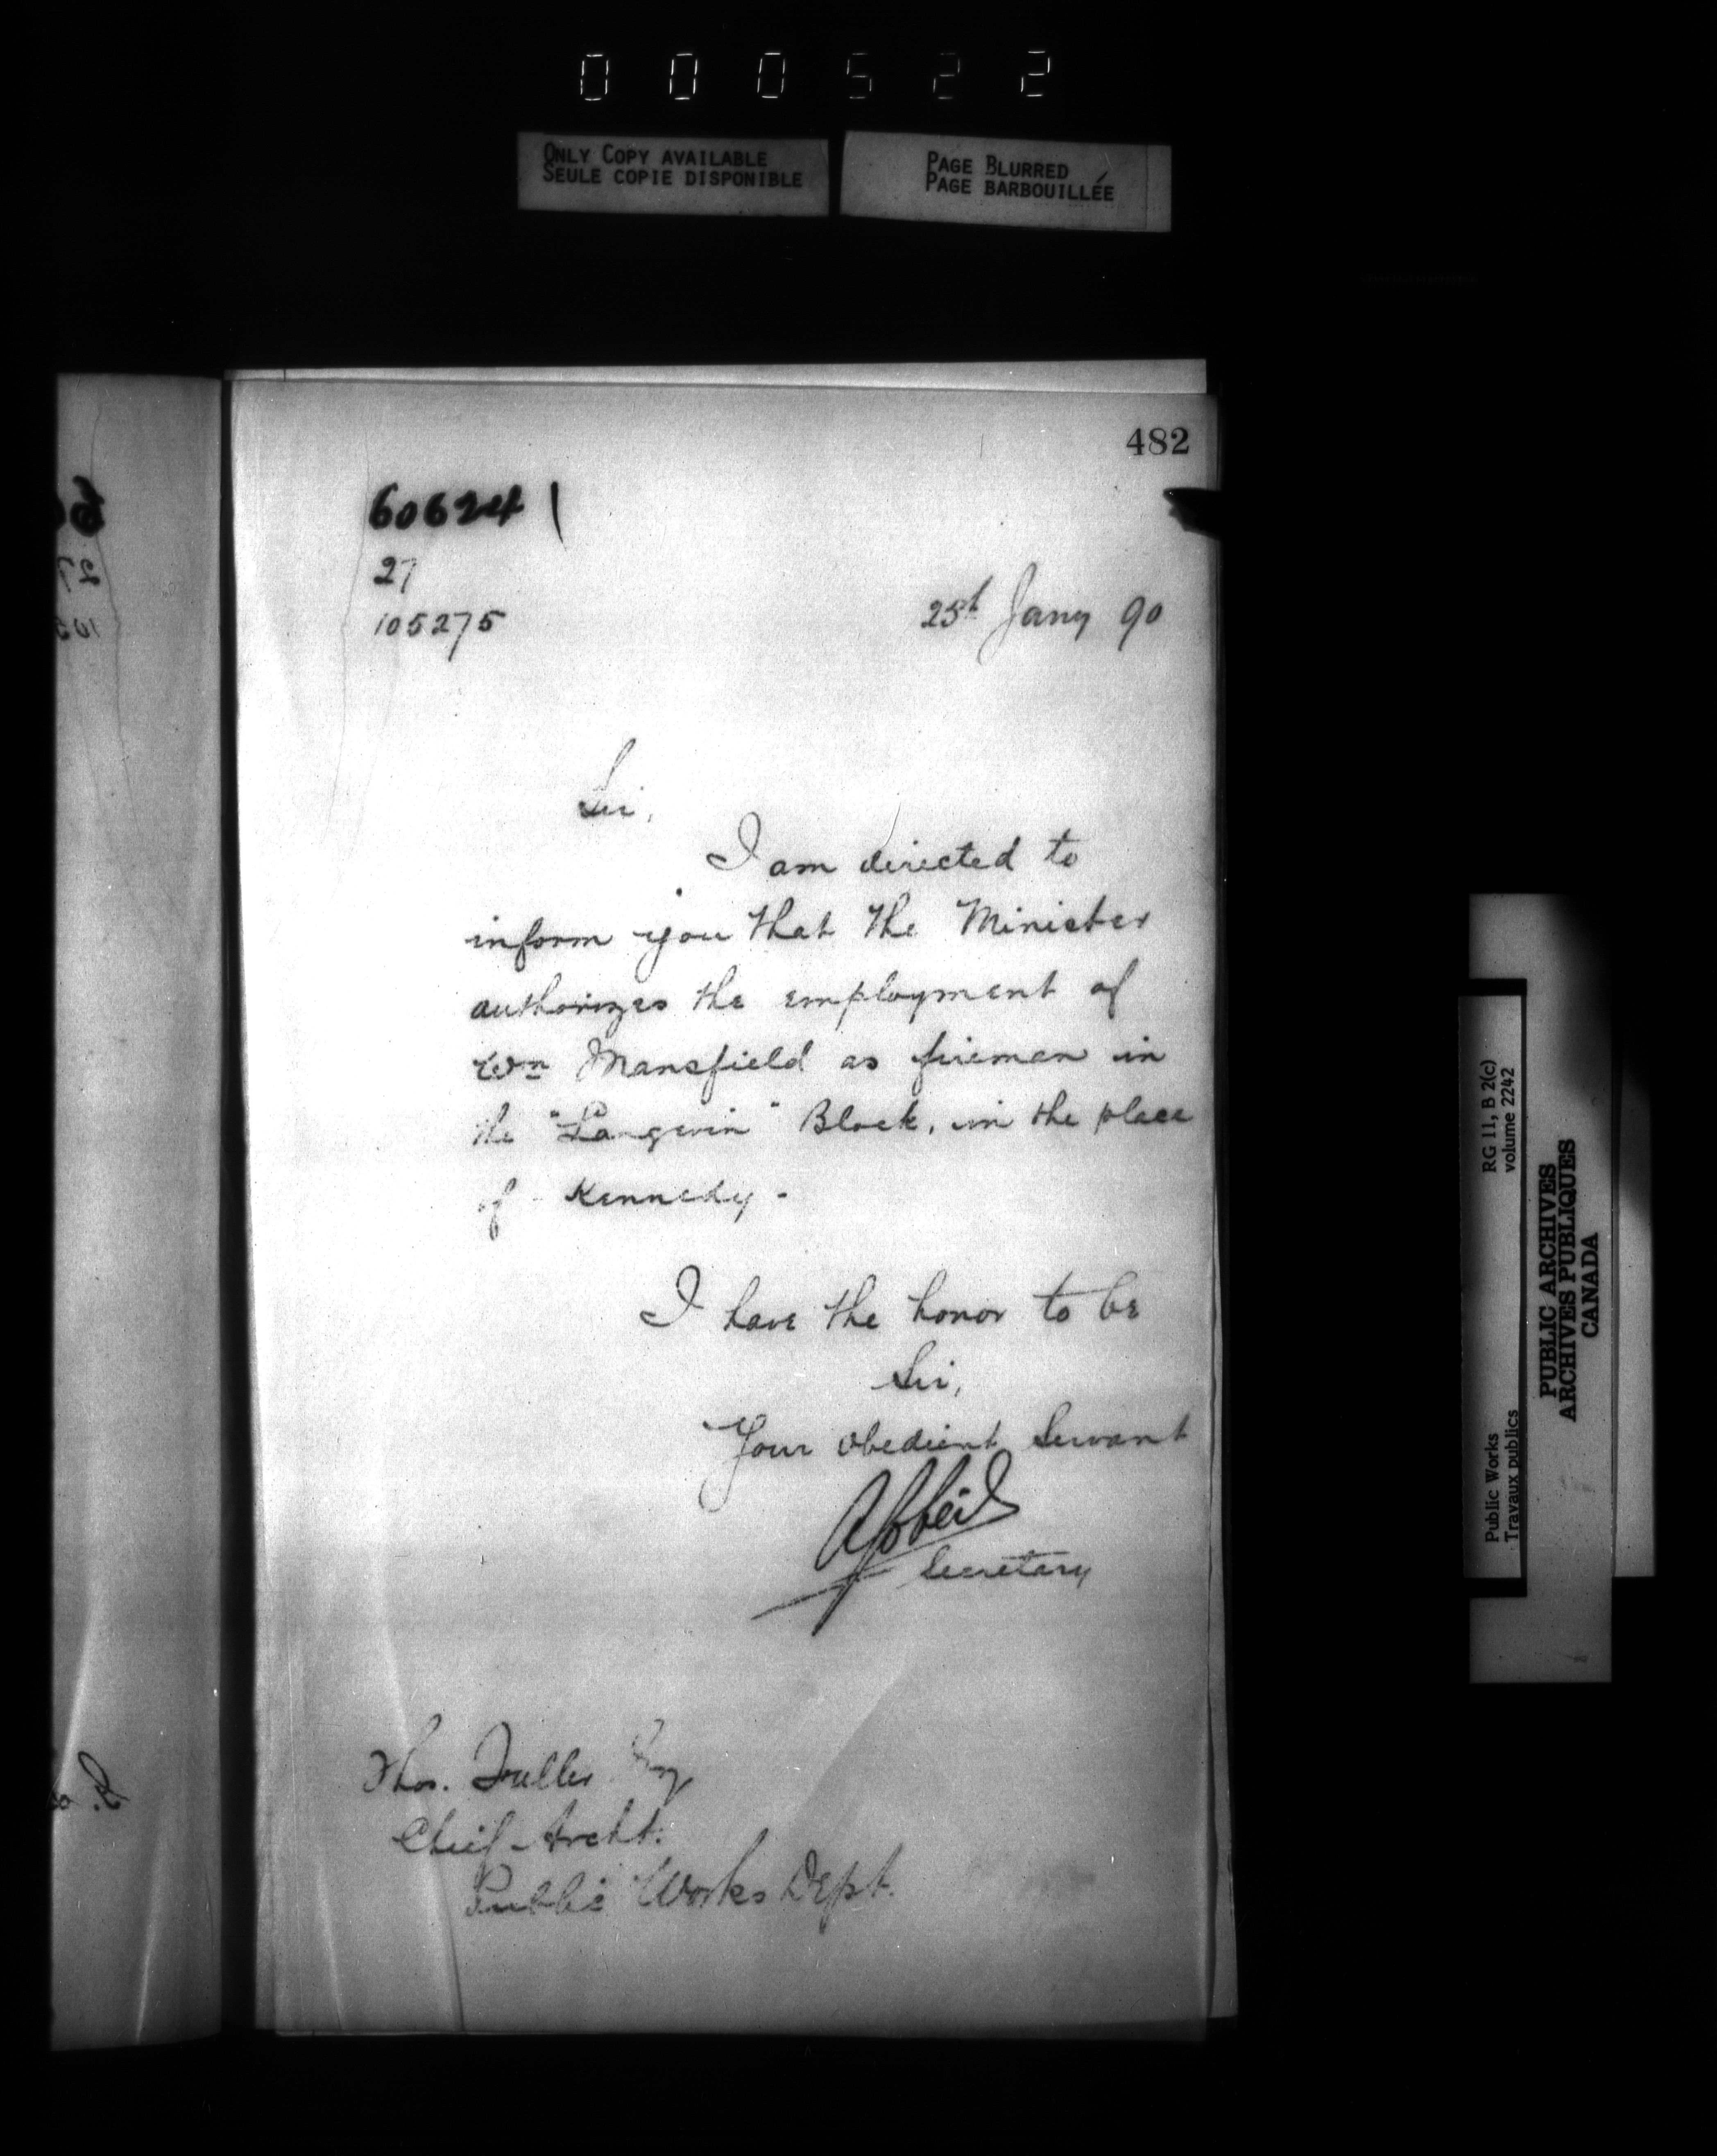 000522
ONLY COPY AVAILABLE
SEULE COPIE DISPONIBLE
PAGE BLURRED
PAGE BARBOUILLÉE
482
60624
27
105275
25th Jany 90
Sir,
I am directed to
inform you that the Minister
authorizes the employment of
Wm Mansfield as fireman in
the "Langevin" Block, in the place
of Kennedy -
I have the honor to be
Sir,
Your obedient Servant
Secretary
Thos. Fuller Esq
Chief Archt.
Public Works Dept.
Public Works
Travaux publics
RG 11, B 2(c)
volume 2242
PUBLIC ARCHIVES
ARCHIVES PUBLIQUES
CANADA